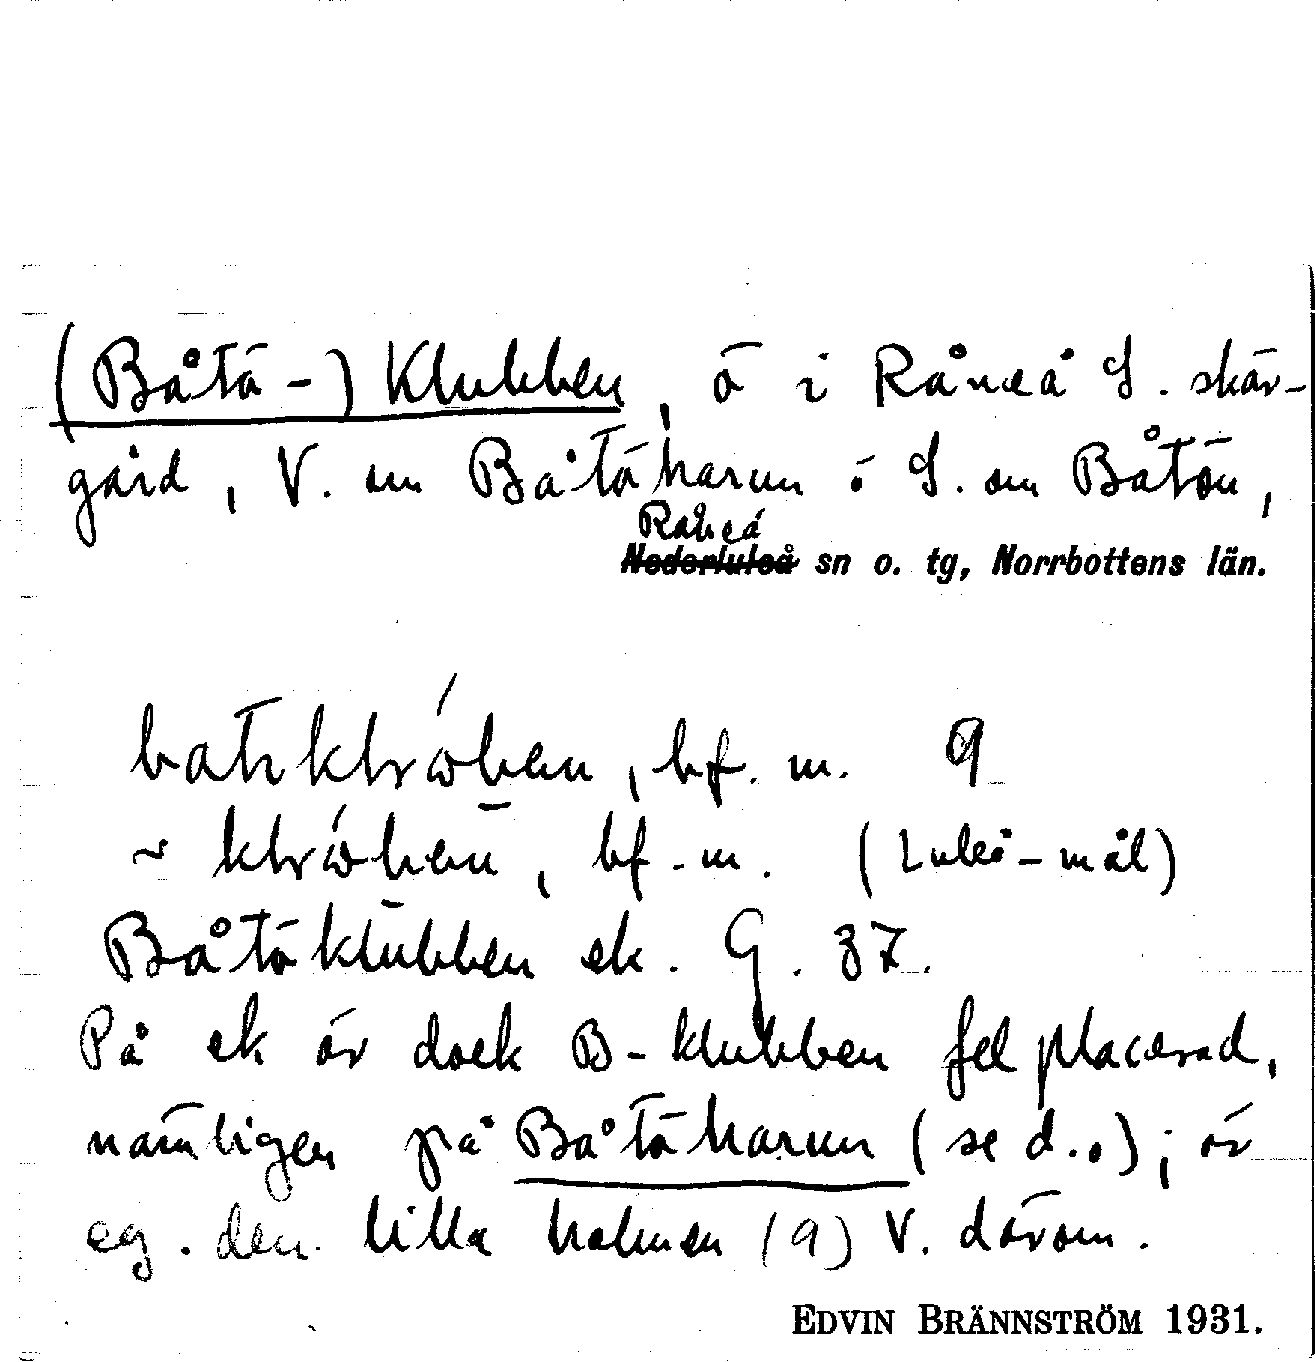 (Båtö-) Klubben, ö i Råneå S. skär-
gård, V. om Båtöharun o S. om Båtön,
Råneå
Nederluleå sn o. tg, Norrbottens län.
bf. m. 9
~ bf. m. (Luleå-mål)
Båtöklubben ek. G. 37.
På ek är dock B-klubben felplacerad,
nämligen på Båtöharun (se d.o); är
eg. den lilla holmen (9) V. därom.
EDVIN BRÄNNSTRÖM 1931.